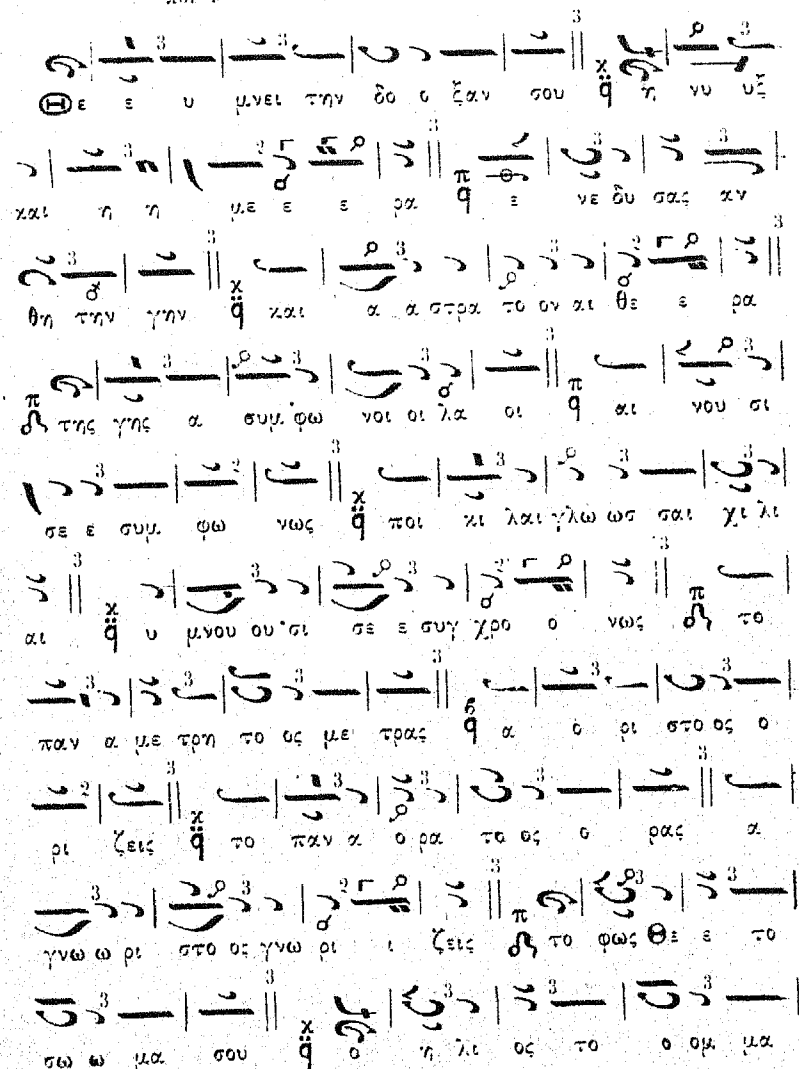 Θε ε υ μνει την δο ο ξαν σου η νυ υξ
και η η με ε ε ρα ε νε δυ σας αν
θη την γην και α α στρα το ον αι θε ε ρα
της γης α συμ φω νοι οι λα οι αι νου σι
σε ε συμ φω νως ποι κι λαι γλω ωσ σαι χι λι
αι υ μνου ου σι σε ε συγ χρο ο νως το
παν α με τρη το ος με τρας α ο ρι στο ος ο
ρι ζεις το παν α ο ρα το ος ο ρας α
γνω ω ρι στο ος γνω ρι ι ζεις το φως Θε ε το
σω ω μα σου ο η λι ος το ο ομ μα